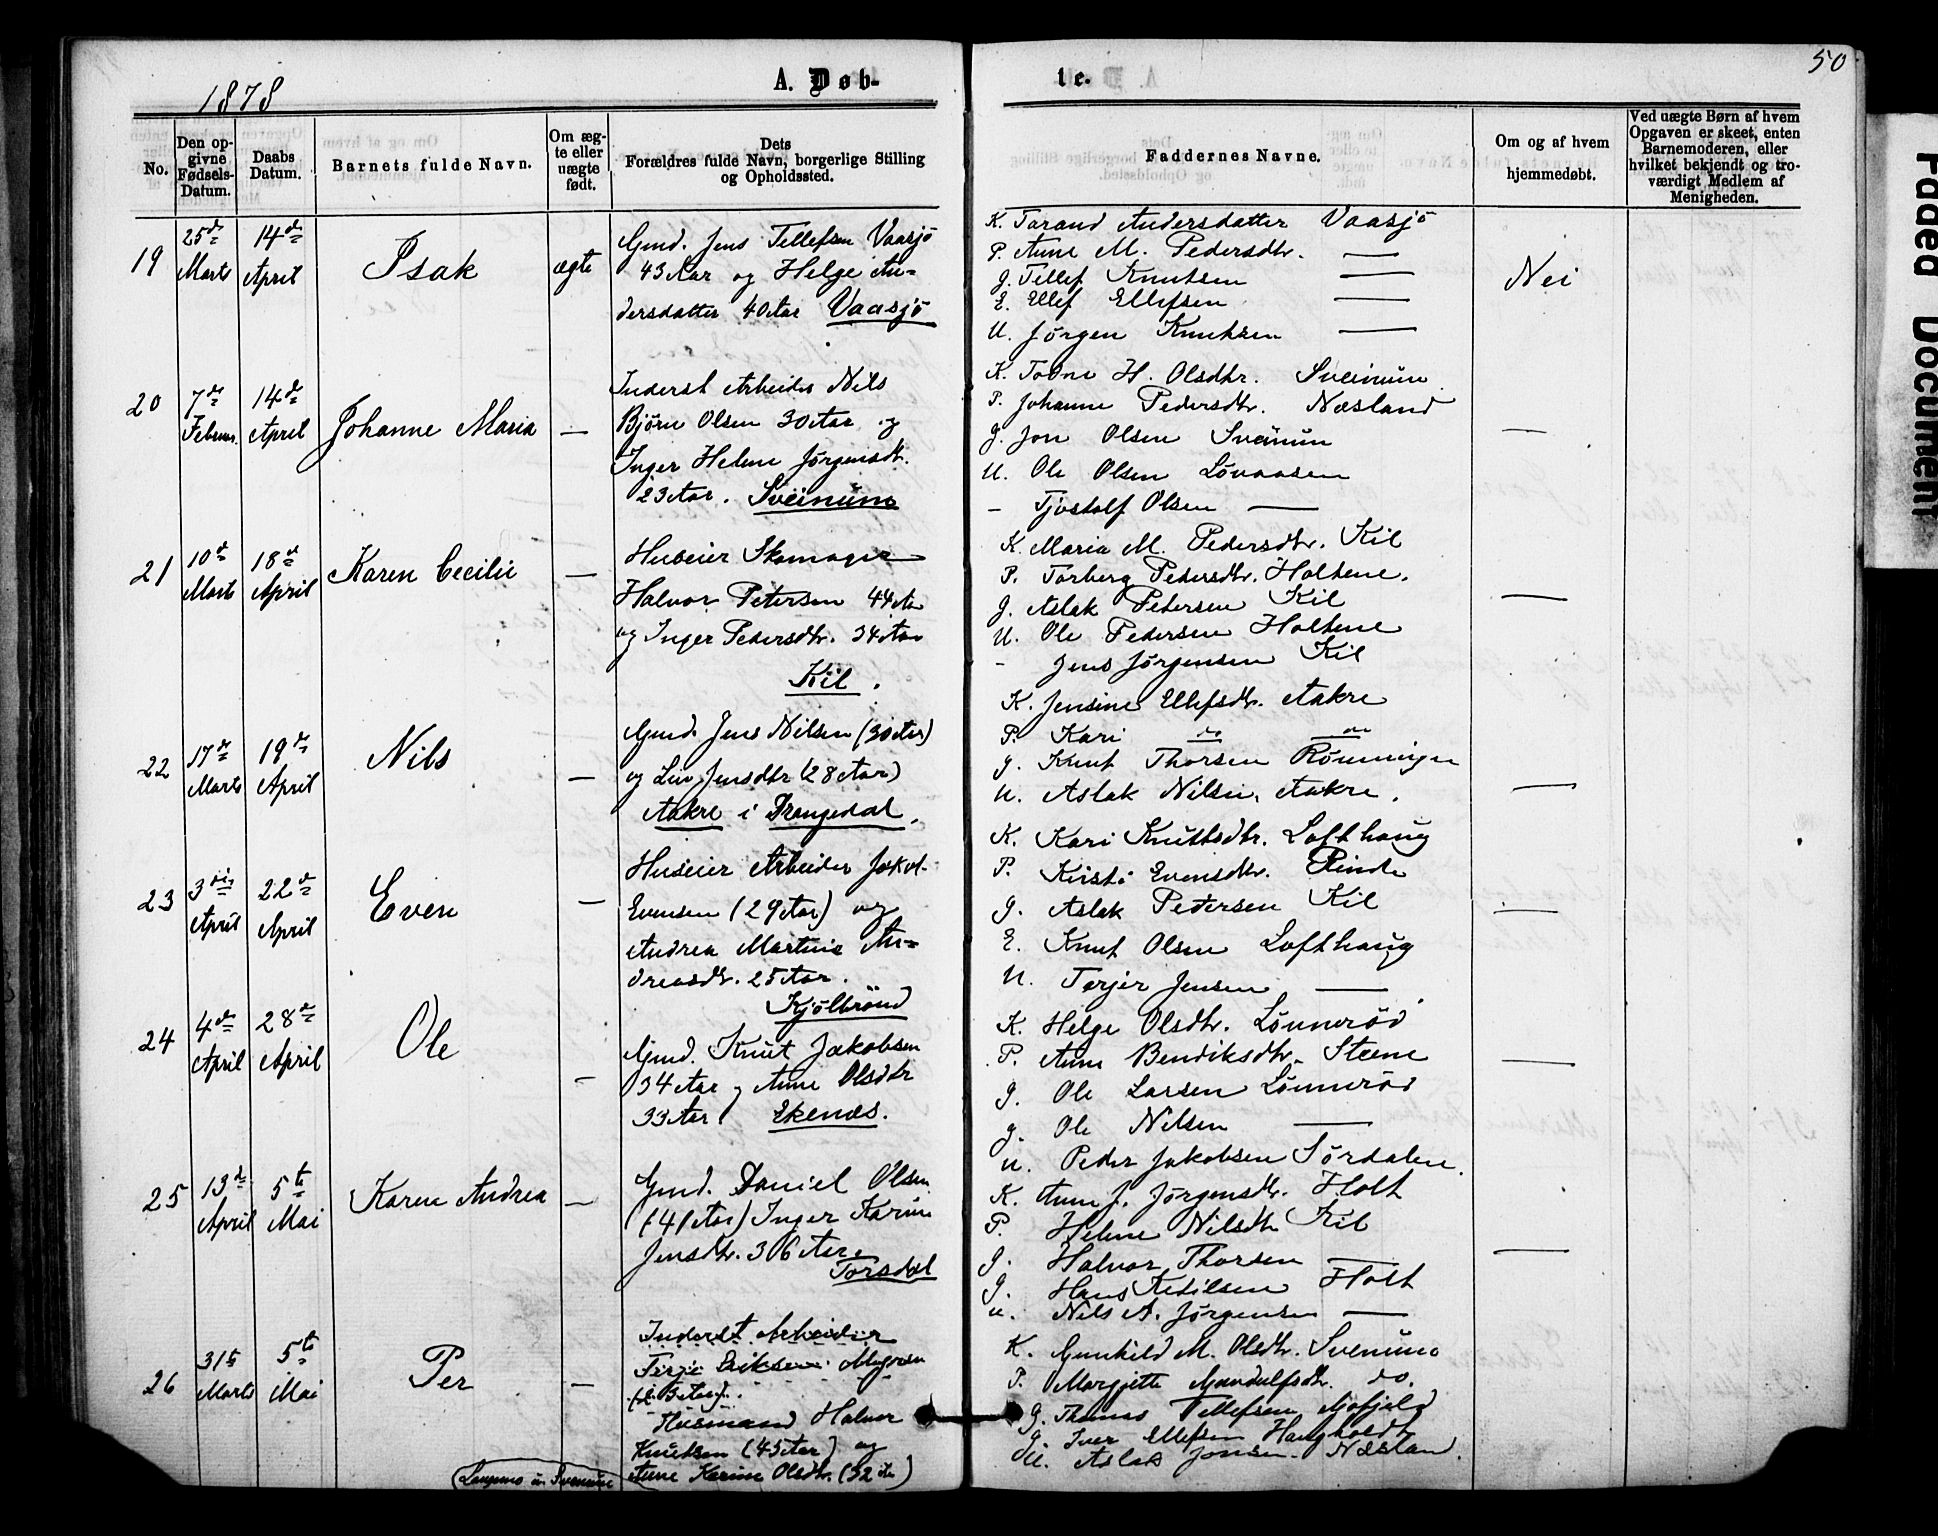 1878
A. Døb-
te.
50
No.
Den op-
givne
Fødsels-
Datum.
Daabs
Datum.
Barnets fulde Navn.
Om æg-
te eller
uægte
født.
Dets
Forældres fulde Navn, borgerlige Stilling
og Opholdssted.
Faddernes Navne.
Om og af hvem
hjemmedøbt.
Ved uægte Børn af hvem
Opgaven er skeet, enten
Barnemoderen, eller
hvilket bekjendt og tro-
værdigt Medlem af
Menigheden.
19
25de
Marts
14de
April
Isak
ægte
Gmd. Jens Tellefsen Vaasjö
43 Aar og Helge An-
dersdatter 40 Aar Vaasjö
K. Tarand Andersdatter Vaasjö
P. Anne M. Pedersdtr. —
G. Tellef Knutsen —
E. Ellef Ellefsen —
U. Jörgen Knutsen —
Nei
20
7de
Februar
14de
April
Johanne Maria
—
Inderst Arbeider Nils
Bjørn Olsen 30 Aar og
Inger Helene Jørgensdtr.
23 Aar. Sveinum
K. Tone H. Olsdtr. Sveinum
P. Johanne Pedersdtr. Næsland
G. Jon Olsen Sveinum
U. Ole Olsen Løvaasen
- Tjostolf Olsen —
—
21
10de
Marts
18de
April
Karen Cecilie
—
Huseier Skomager
Halvor Petersen 44 Aar
og Inger Pedersdtr. 34 Aar
Kil.
K. Maria M. Pedersdtr. Kil
P. Torberg Pedersdtr. Holtene.
G. Aslak Petersen Kil
U. Ole Pedersen Holtene
- Jens Jørgensen Kil
—
22
17de
Marts
19de
April
Nils
—
Gmd. Jens Nilsen (30 Aar)
og Liv Jensdtr (28 Aar)
Aakre i Drangedal.
K. Jensine Ellefsdtr. Aakre
P. Kari do do
G. Knut Thorsen Rønningen
U. Aslak Nilsen, Aakre.
—
23
3die
April
22de
April
Even
—
Huseier Arbeider Jakob
Evensen (29 Aar) og
Andrea Martine An-
dreasdtr. 25 Aar.
Kjølbrønd
K. Kari Knutsdtr. Lofthaug
P. Kirsti Evensdtr. Rinde
G. Aslak Petersen Kil
E. Knut Olsen Lofthaug
U. Terjer Jensen —
—
24
4de
April
28de
April
Ole
—
Gmd. Knut Jakobsen
34 Aar og Anne Olsdtr
33 Aar Ekenæs.
K. Helge Olsdtr. Lönnerød
P. Anne Bendiksdtr. Steene
G. Ole Larsen Lönnerød
G. Ole Nilsen —
U. Peder Jakobsen Sørdalen.
—
25
13de
April
5te
Mai
Karen Andrea
—
Gmd. Daniel Olsen
(41 Aar) Inger Karine
Jensdtr. 36 Aar.
Torsdal
K. Anne J. Jørgensdtr. Holt
P. Helene Nilsdtr Kil
G. Halvor Thorsen —
G. Hans Ketilsen Holt
U. Nils A. Jørgensen —
—
26
31te
Marts
5te
Mai
Per
—
Inderst Arbeider
Terje Eriksen
Husmand Halvor
Knutsen (45 Aar) og
Anne Karine Olsdtr. (32 Aar)
K. Gunhild M. Olsdtr. Svenum
P. Margjette Gundulfsdtr. do.
G. Thomas Tellefsen
G. Iver Ellefsen Haugholdt
U. Aslak Jonsen. Næsland.
Faded Document